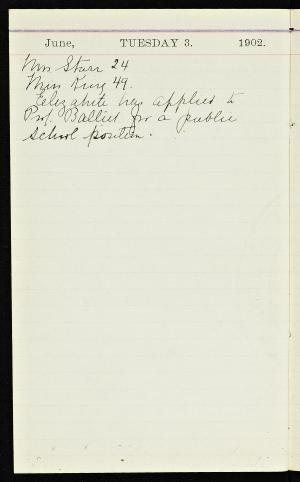 June, TUESDAY 3. 1902.
Mrs Starr 24
Miss King 49.
Elizabite has applied to
Prof. Balliet for a public
school position.